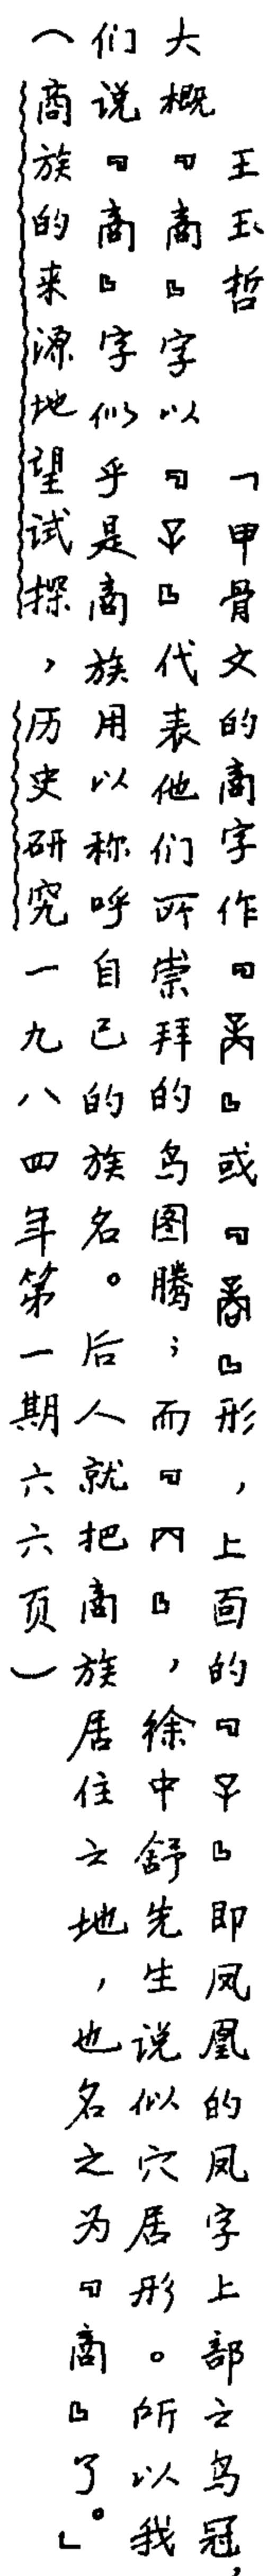 王玉哲　「甲骨文的商字作『𠹧』或『𠾃』形，上面的『𢆉』即凤凰的凤字上部之鸟冠，
大概『商』字以『𢆉』代表他们所崇拜的鸟图腾；而『丙』，徐中舒先生说似穴居形。所以我
们说『商』字似乎是商族用以称呼自己的族名。后人就把商族居住之地，也名之为『商』了。」
（商族的来源地望试探，历史研究一九八四年第一期六六页）